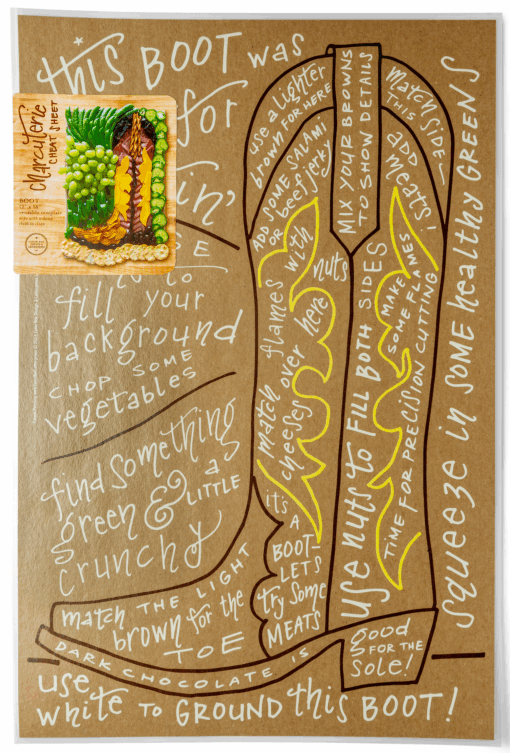 this BOOT was
for
in'
Charcuterie
CHEAT SHEET
BOOT
12" x 18"
fill your
background
CHOP SOME
vegetables
find something
green & a
LITTLE
crunchy
use a lighter
brown FOR HERE
ADD SOME SALAMI
OR beef jerky
MIX YOUR BROWNS
TO SHOW DETAILS
match side
THIS
ADD
meats!
match flames with
cheeses over here
nuts
USE nuts to FILL BOTH SIDES
MAKE
SOME FLAMES
TIME FOR PRECISION CUTTING
squeeze in SOME healthy GREENS
it's
A
BOOT-
LETS
try some
MEATS
match THE LIGHT
brown for the
TOE
DARK CHOCOLATE IS
good
FOR THE
Sole!
use
white TO GROUND this BOOT!